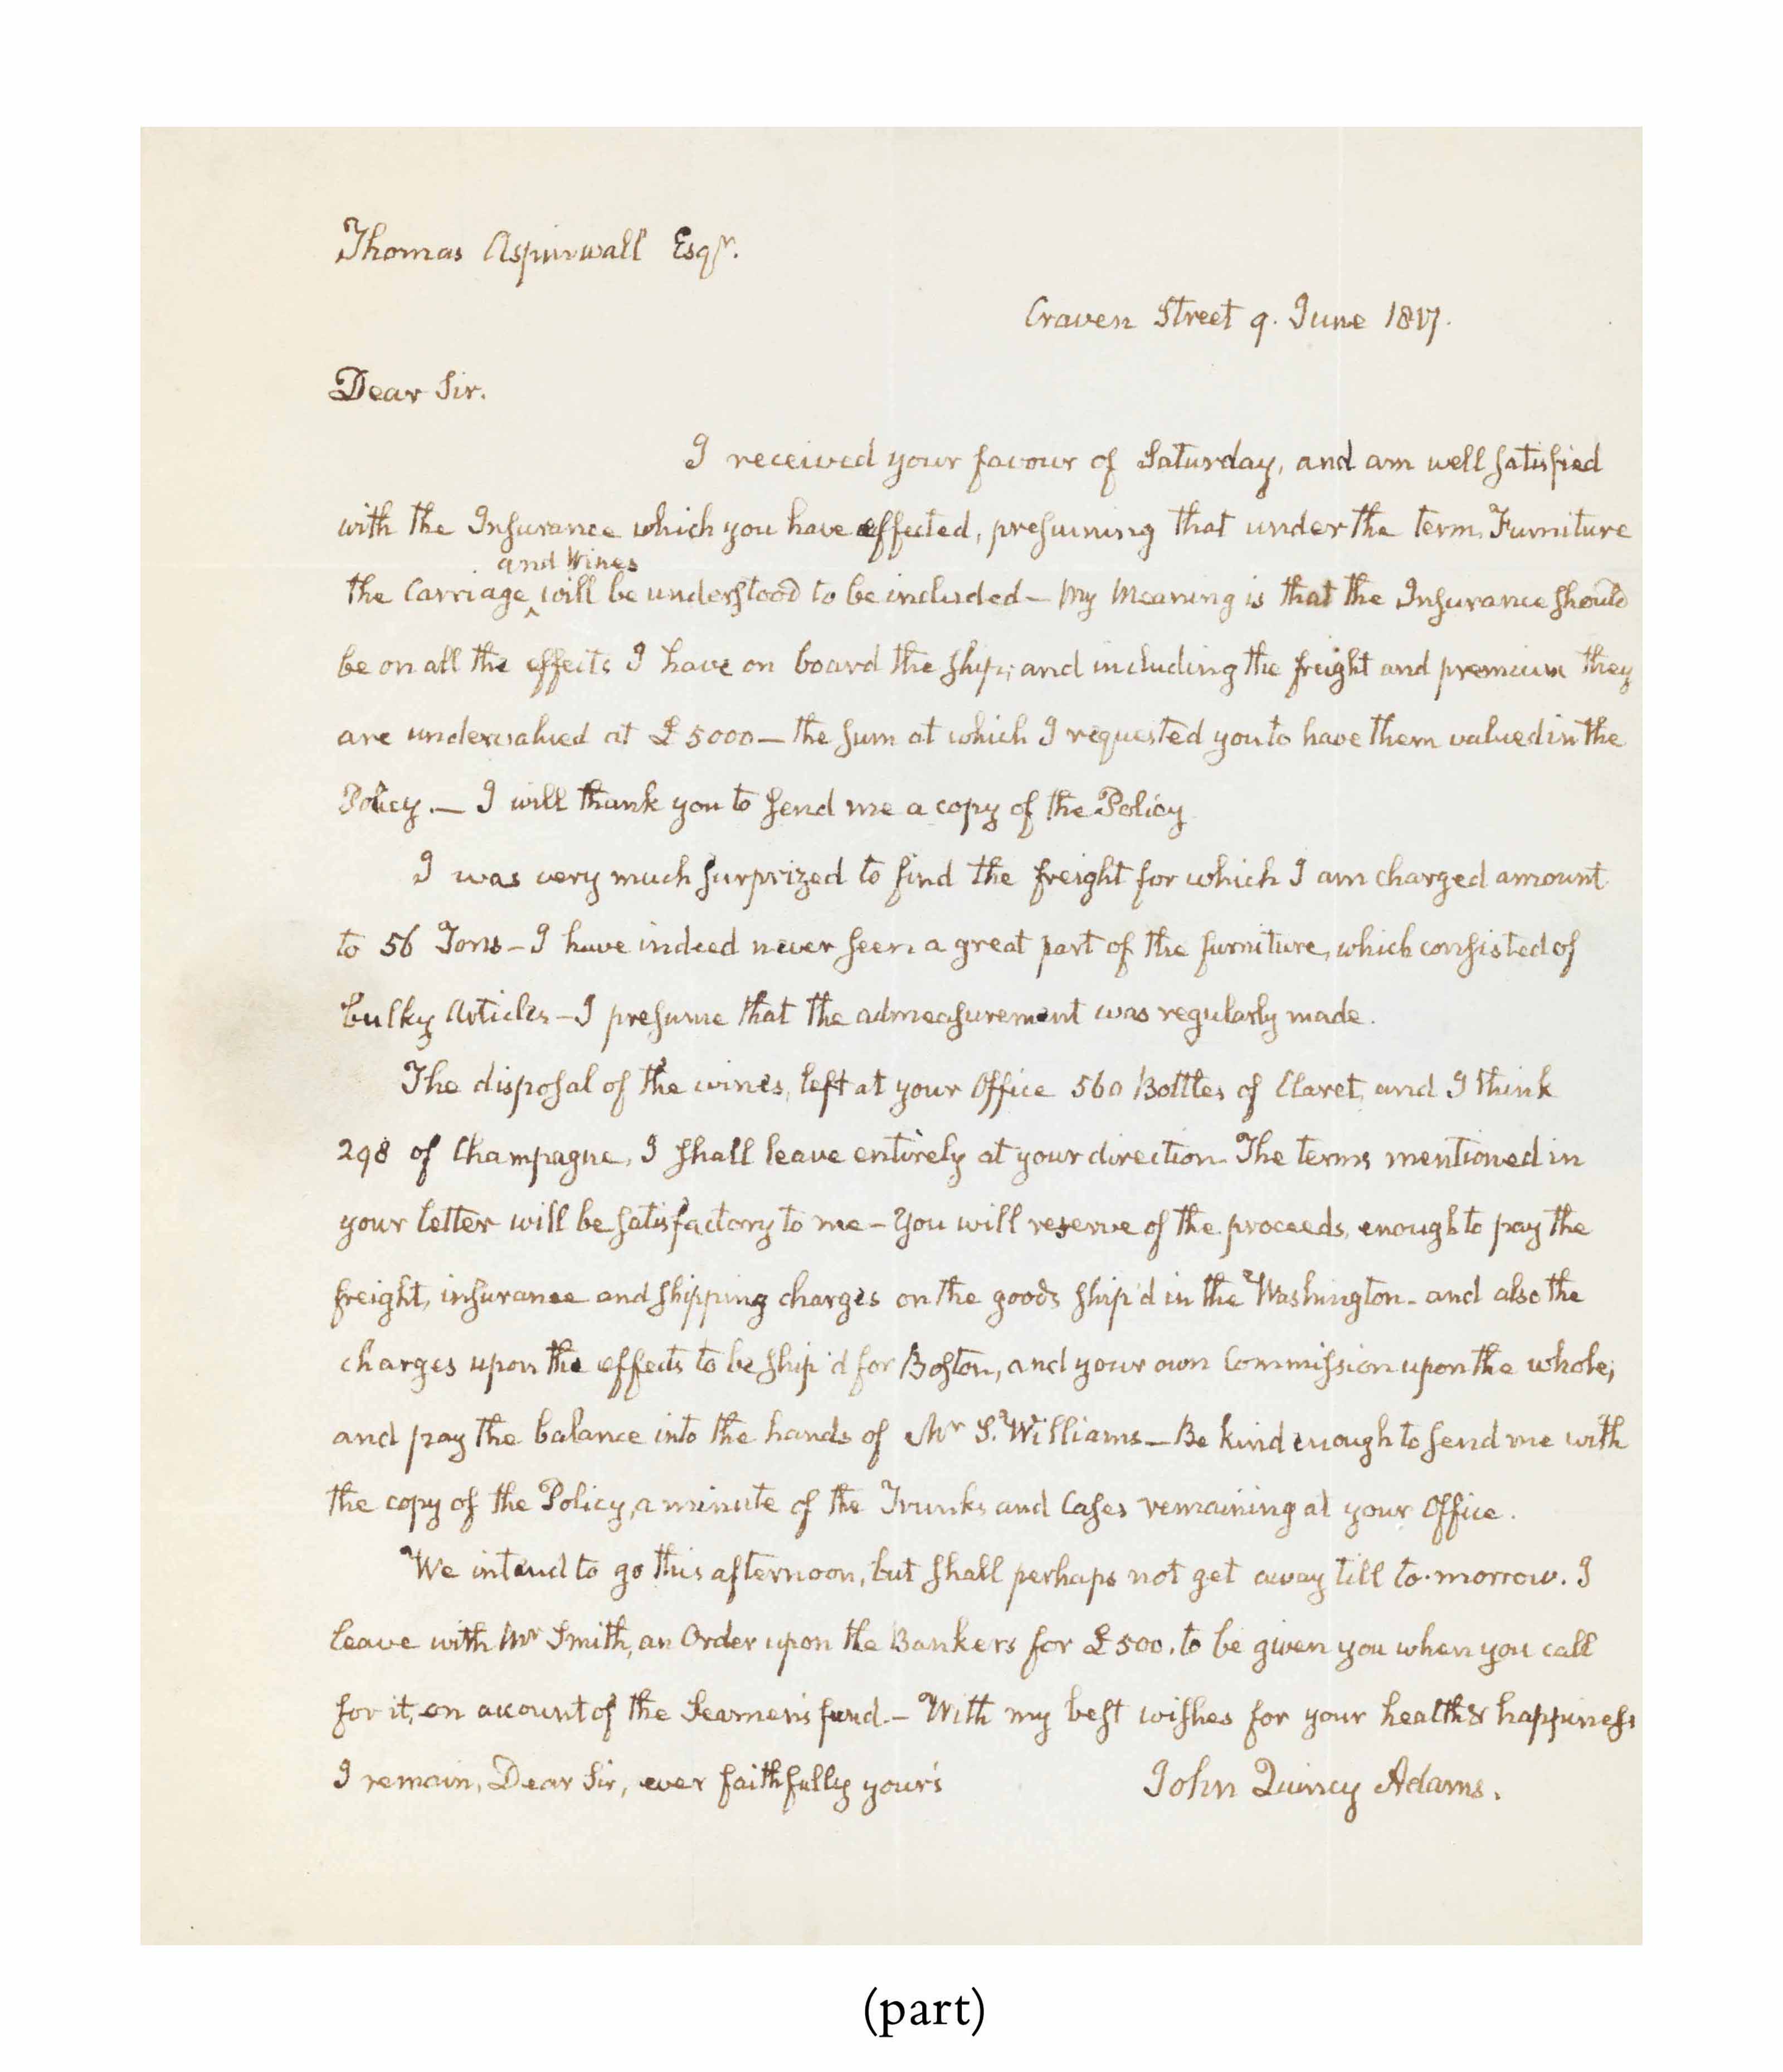 Thomas Aspinwall Esqr.
Craven Street 9. June 1817.
Dear Sir.
I received your favour of Saturday, and am well satisfied
with the Insurance which you have effected, presuming that under the term Furniture
and Wines
the Carriage ^ will be understood to be included — My Meaning is that the Insurance should
be on all the effects I have on board the ship; and including the freight and premium they
are undervalued at £5000 — the sum at which I requested you to have them valued in the
Policy. — I will thank you to send me a copy of the Policy
I was very much surprized to find the freight for which I am charged amount
to 56 Tons — I have indeed never seen a great part of the furniture, which consisted of
bulky Articles — I presume that the admeasurement was regularly made.
The disposal of the wines, left at your Office 560 Bottles of Claret, and I think
298 of Champagne, I shall leave entirely at your direction. The terms mentioned in
your letter will be satisfactory to me — You will reserve of the proceeds, enough to pay the
freight, insurance and shipping charges on the goods ship'd in the Washington — and also the
charges upon the effects to be ship'd for Boston, and your own Commission upon the whole;
and pay the balance into the hands of Mr S. Williams — Be kind enough to send me with
the copy of the Policy, a minute of the Trunks and Cases remaining at your Office.
We intend to go this afternoon, but shall perhaps not get away till to-morrow. I
leave with Mr Smith, an Order upon the Bankers for £500. to be given you when you call
for it, on account of the Seamen's fund. — With my best wishes for your health & happiness
I remain, Dear Sir, ever faithfully your's John Quincy Adams.
(part)